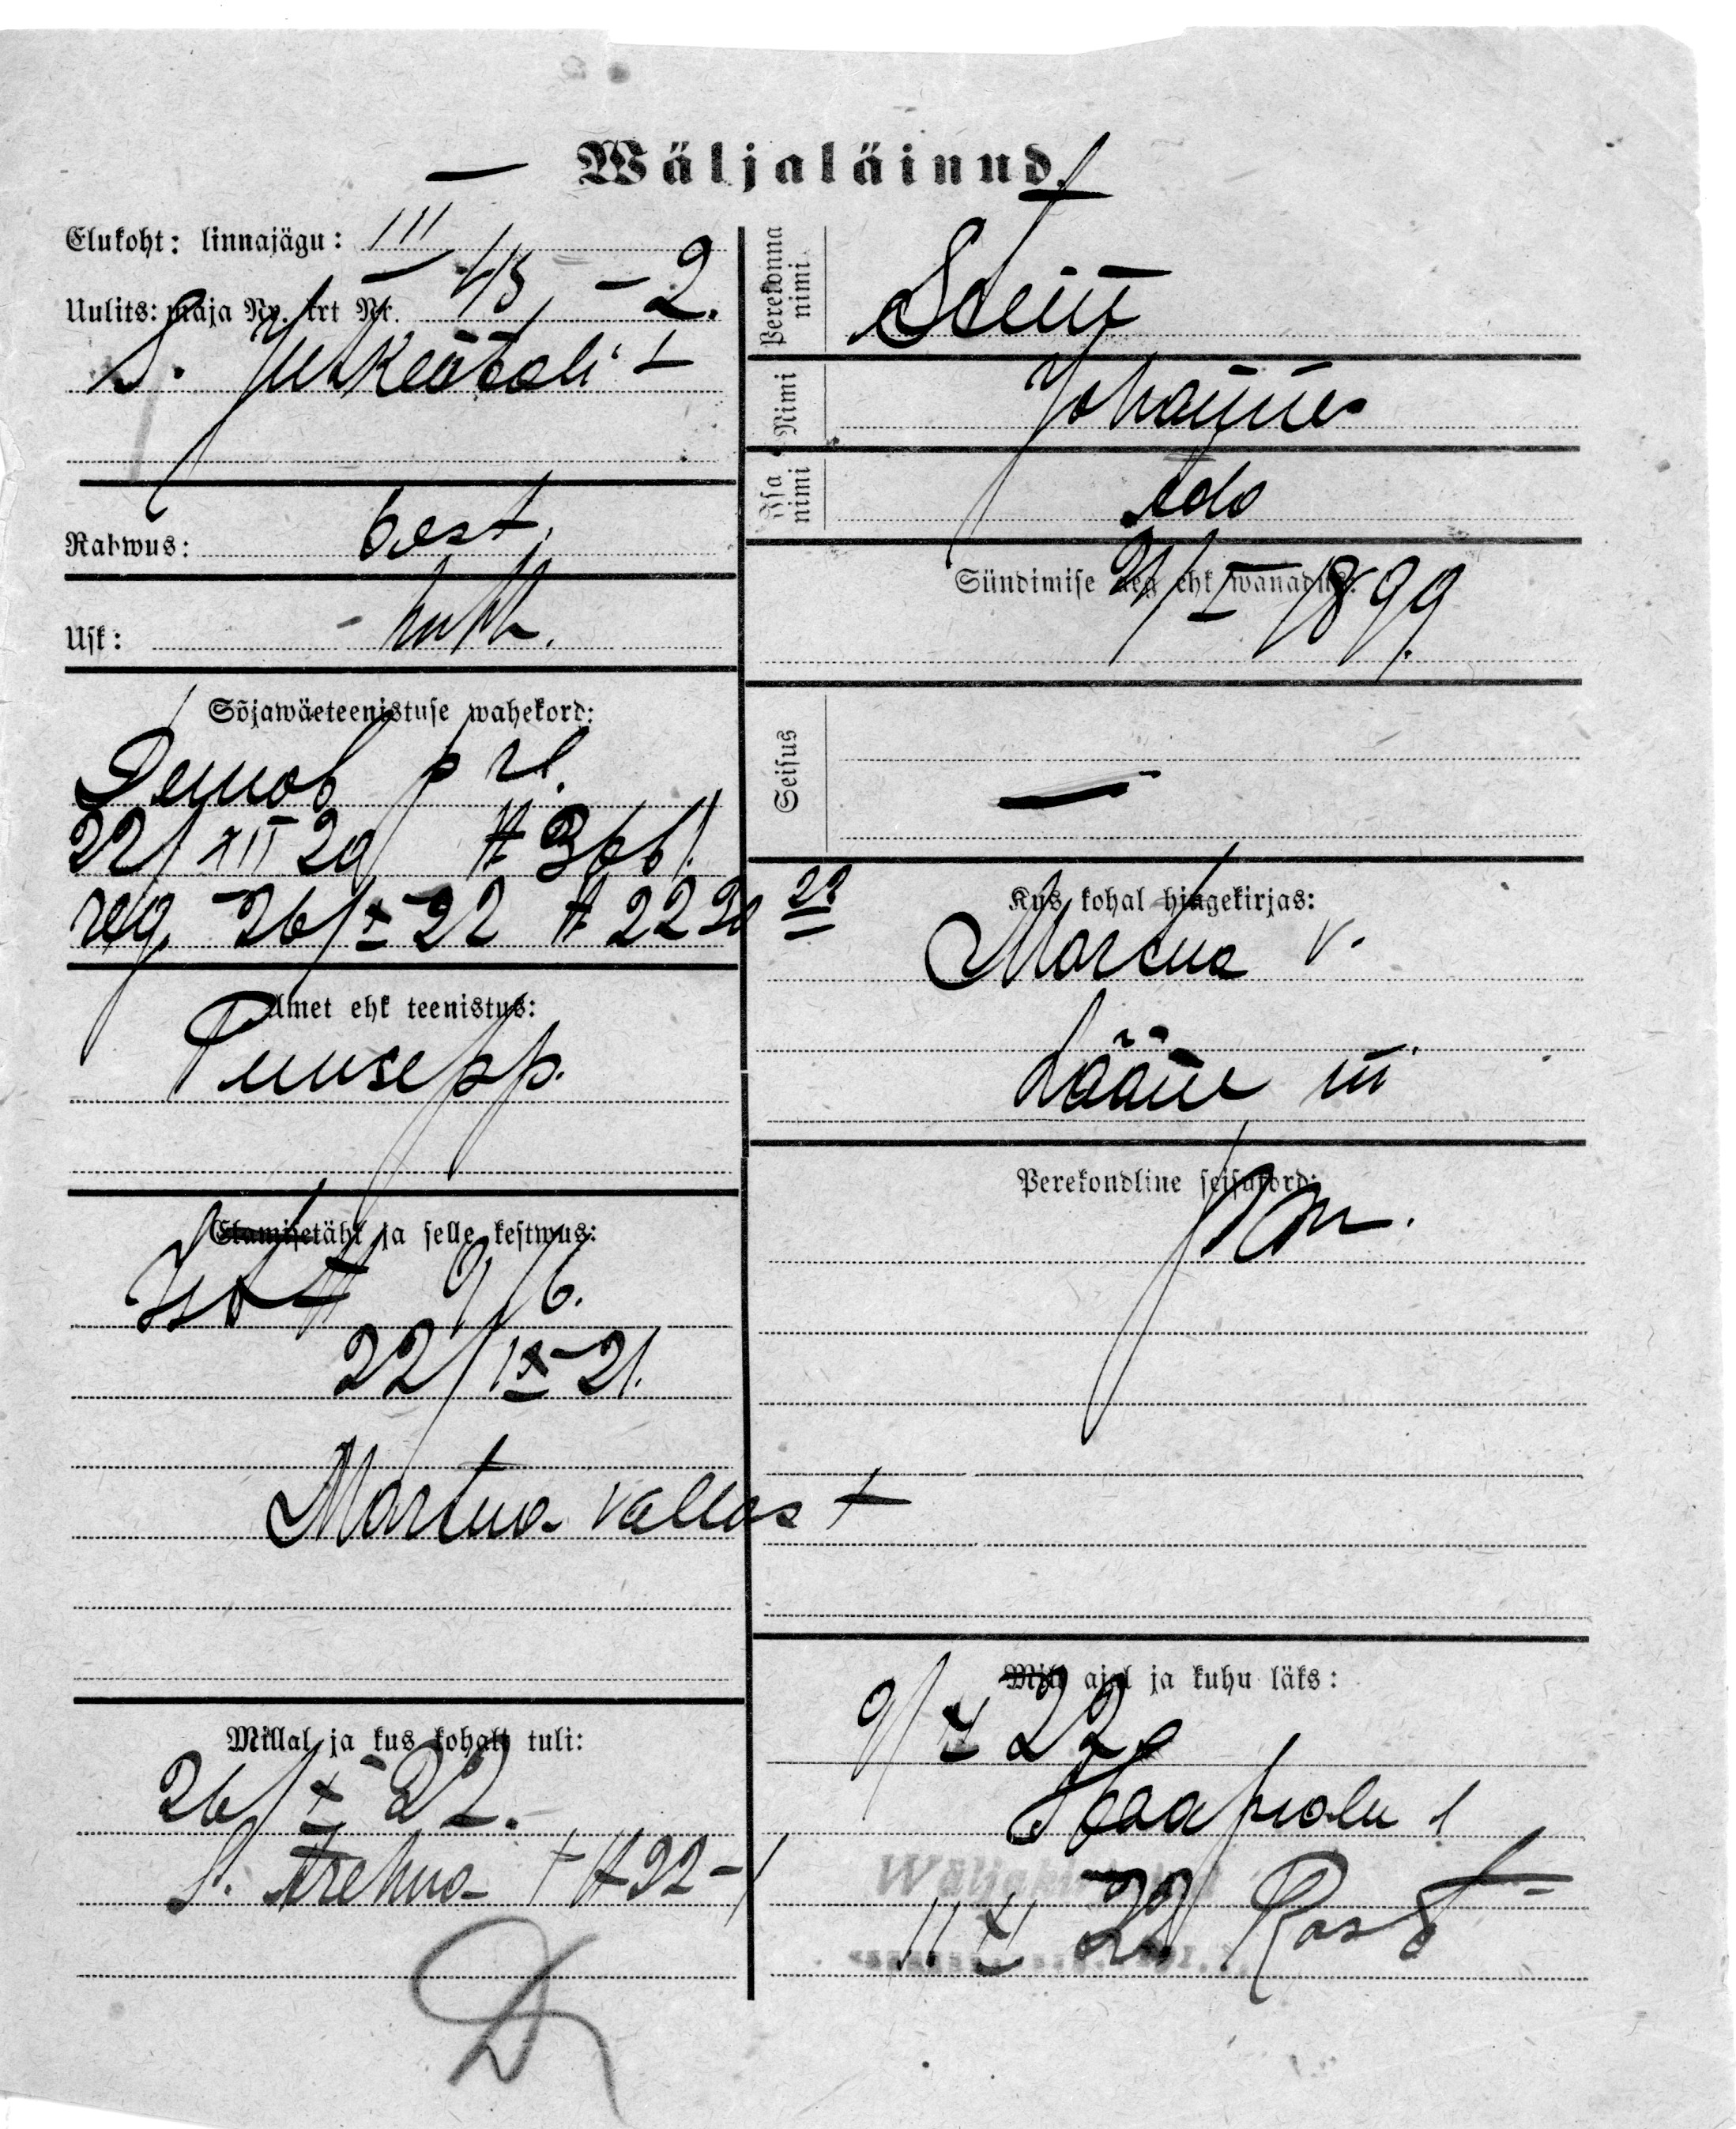 Wäljaläinud.
Elukoht: linnajägu: III
Uulits: maja Nr. krt Nr. 43 – 2.
S. Juhkentali t
Rahwus: eest.
Usk: luth.
Sõjawäeteenistuse wahekord:
Demob
22/XII 20 № 3661.
reg. 26/X–22 № 2220
Amet ehk teenistus:
Puusepp.
Elamisetäht ja selle kestwus:
22/IX–21.
Martna vallas t
Millal ja kus kohalt tuli:
26/X 22.
S. № 32–1
Perekonna nimi
Stein
Nimi
Johannes
Isa nimi
Ado
Sündimise aeg ehk wanadus:
21/I 1899.
Seisus
—
22
Kus kohal hingekirjas:
Martna v.
Lääne m
Perekondline seisukord:
Mil ajal ja kuhu läks:
9/XI 22
Haapsalu
11/XI 22